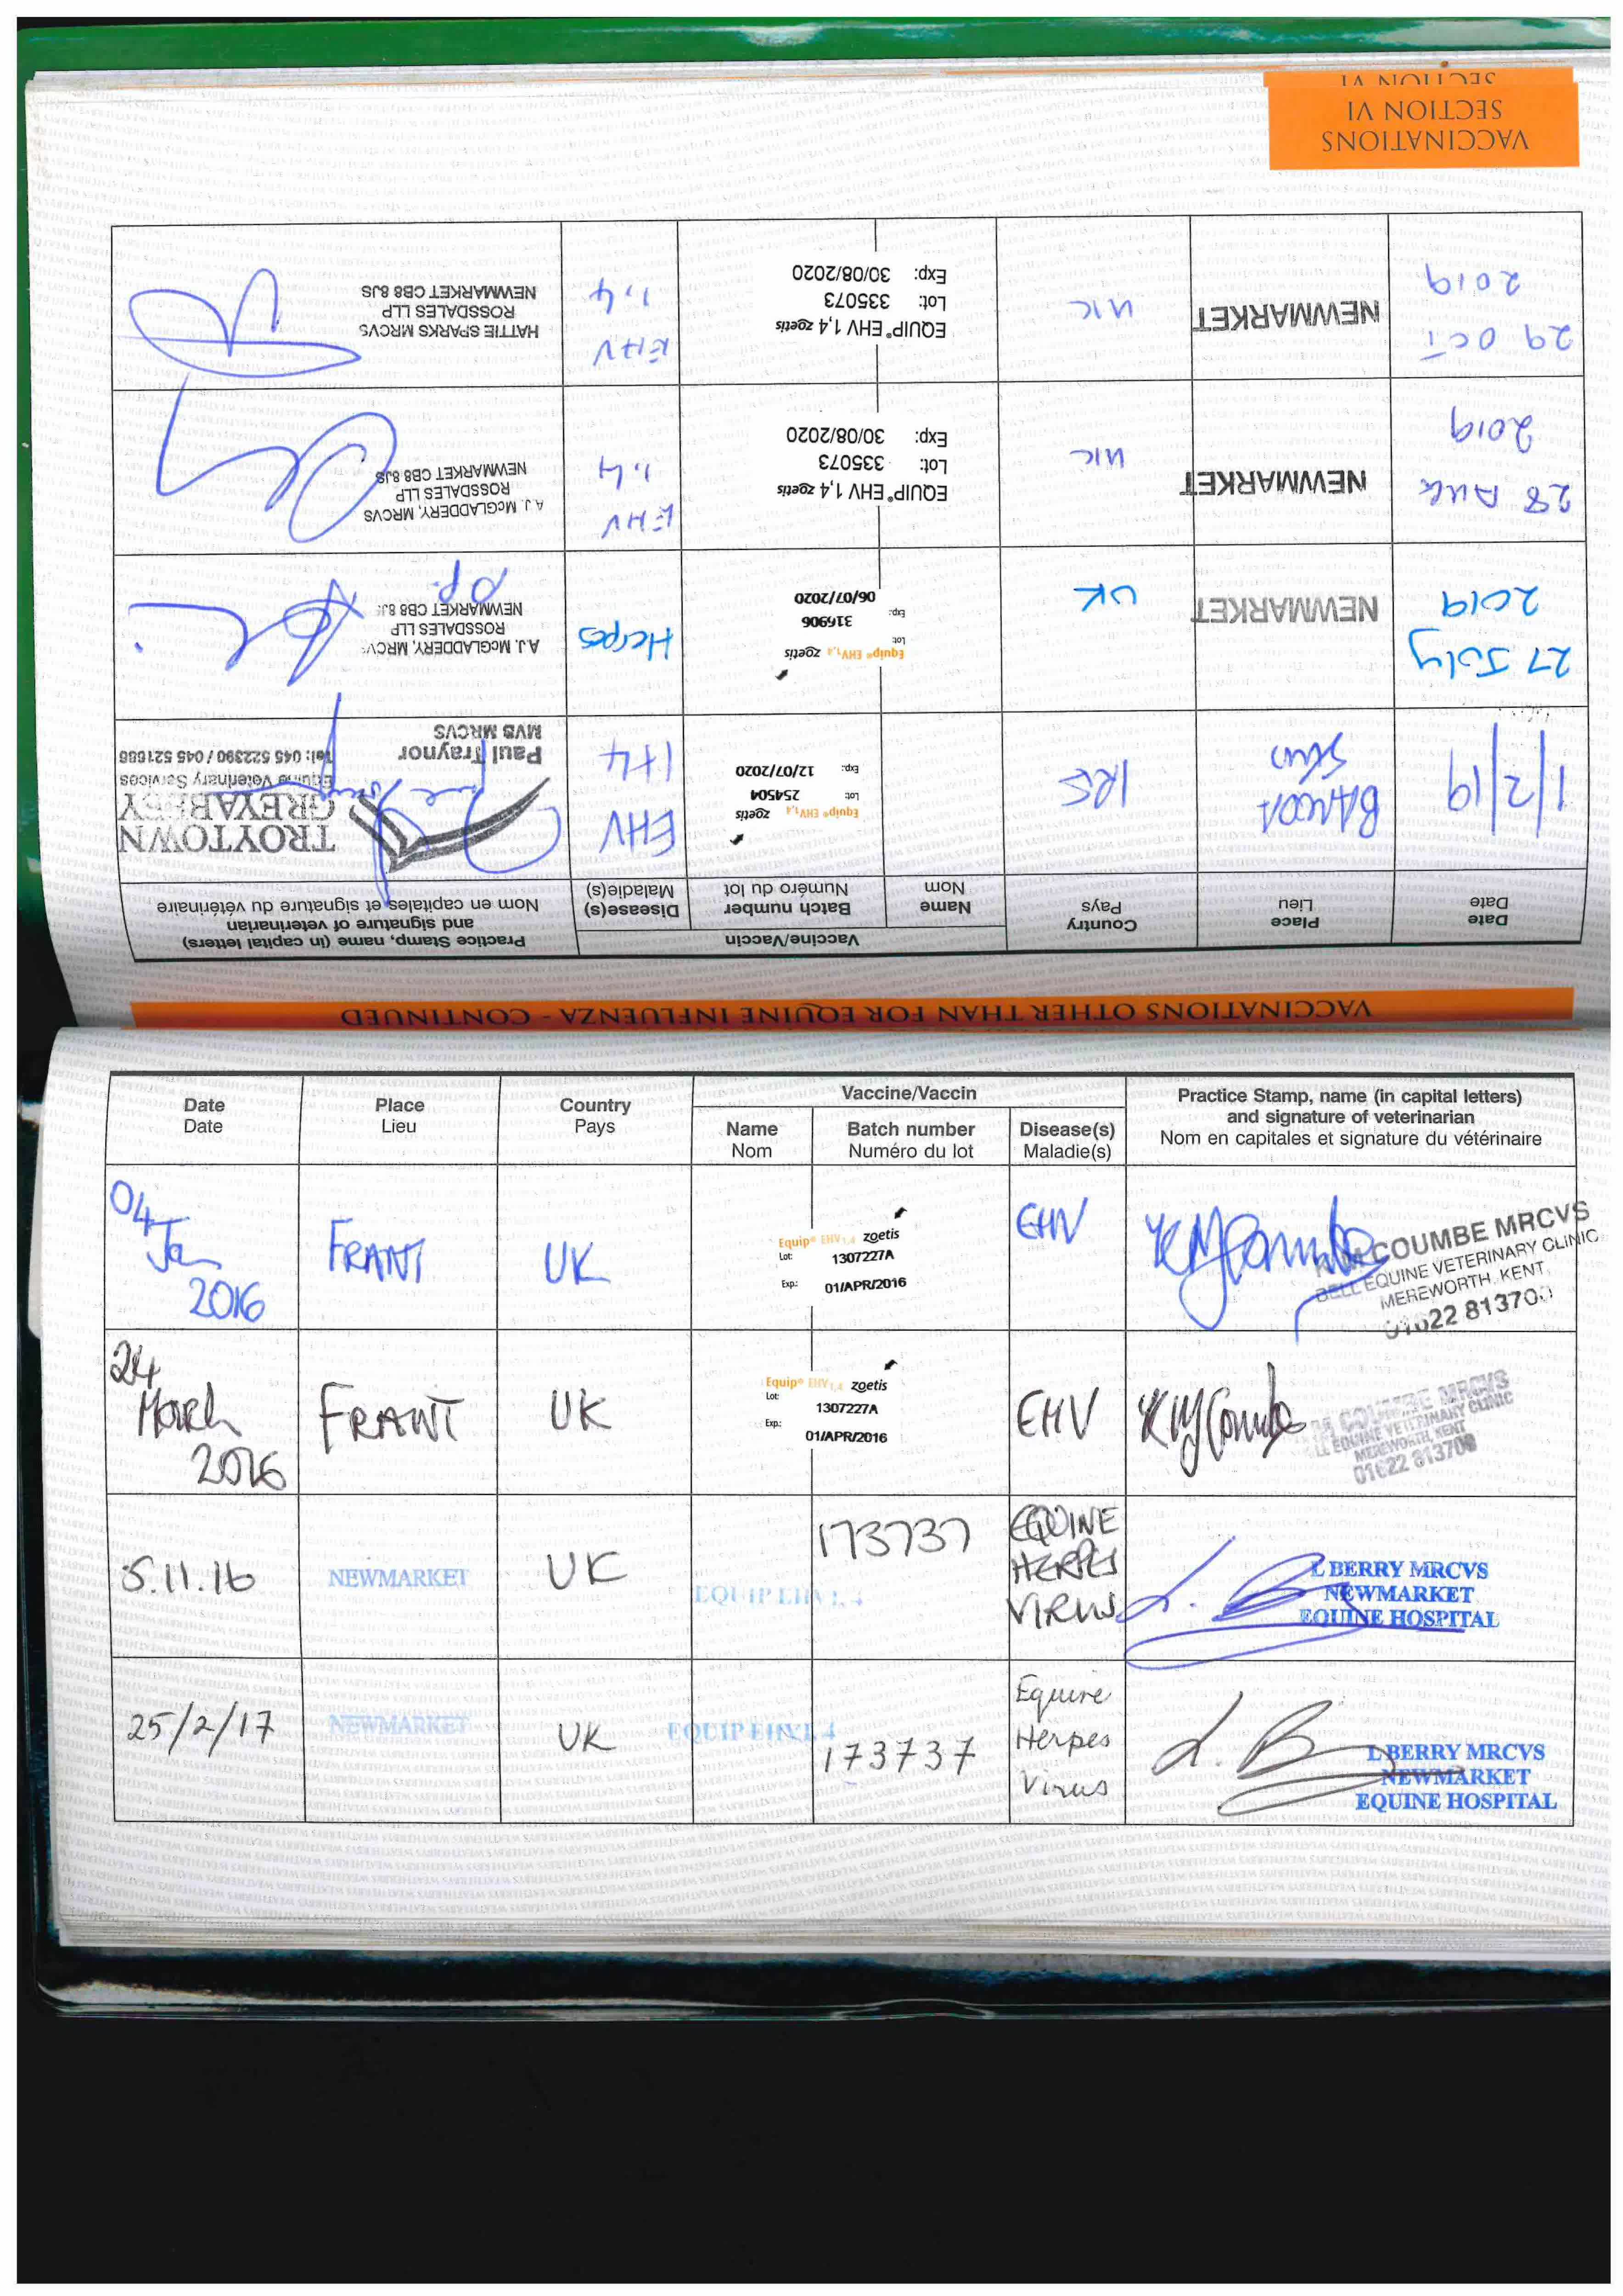 VACCINATIONS
SECTION VI
SECTION VI
VACCINATIONS OTHER THAN FOR EQUINE INFLUENZA - CONTINUED
Date
Date
Place
Lieu
Country
Pays
Vaccine/Vaccin
Name
Nom
Batch number
Numéro du lot
Disease(s)
Maladie(s)
Practice Stamp, name (in capital letters)
and signature of veterinarian
Nom en capitales et signature du vétérinaire
1/2/19
IRE
Equip® EHV1,4 zoetis
Lot: 254504
Exp: 12/07/2020
EHV
1+4
Paul Traynor
MVB MRCVS
TROYTOWN
GREYABBEY
Equine Veterinary Services
Tel: 045 522390 / 045 521686
27 July
2019
NEWMARKET
UK
Equip® EHV1,4 zoetis
Lot: 316906
Exp: 06/07/2020
Herpes
A.J. McGLADDERY, MRCVS
ROSSDALES LLP
NEWMARKET CB8 8JS
pp.
28 AUG
2019
NEWMARKET
UK
EQUIP® EHV 1,4 zoetis
Lot: 335073
Exp: 30/08/2020
EHV
1,4
A.J. McGLADDERY, MRCVS
ROSSDALES LLP
NEWMARKET CB8 8JS
29 OCT
2019
NEWMARKET
UK
EQUIP® EHV 1,4 zoetis
Lot: 335073
Exp: 30/08/2020
EHV
1,4
HATTIE SPARKS MRCVS
ROSSDALES LLP
NEWMARKET CB8 8JS
Date
Date
Place
Lieu
Country
Pays
Vaccine/Vaccin
Name
Nom
Batch number
Numéro du lot
Disease(s)
Maladie(s)
Practice Stamp, name (in capital letters)
and signature of veterinarian
Nom en capitales et signature du vétérinaire
04
Jan
2016
FRANT
UK
Equip® EHV1,4 zoetis
Lot: 1307227A
Exp: 01/APR/2016
EHV
COUMBE MRCVS
BELL EQUINE VETERINARY CLINIC
MEREWORTH, KENT
01622 813700
24
March
2016
FRANT
UK
Equip® EHV1,4 zoetis
Lot: 1307227A
Exp: 01/APR/2016
EHV
COUMBE MRCVS
EQUINE VETERINARY CLINIC
MEREWORTH, KENT
01622 813700
5.11.16
NEWMARKET
UK
EQUIP EHV 1,4
173737
EQUINE
HERPES
VIRUS
L. B
L BERRY MRCVS
NEWMARKET
EQUINE HOSPITAL
25/2/17
NEWMARKET
UK
EQUIP EHV1,4
173737
Equine
Herpes
Virus
L. B
L BERRY MRCVS
NEWMARKET
EQUINE HOSPITAL